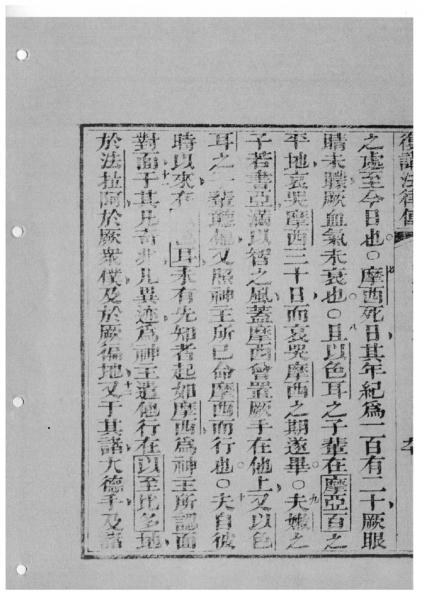 復講法律傳
之處至今日也○摩西死日其年紀爲一百有二十厥眼
睛未矇厥血氣未衰也○且以色耳之子輩在摩亞百之
平地哀哭摩西三十日而哀哭摩西之期遂畢○夫嫩之
子若書亞滿以智之風蓋摩西曾置厥手在他上又以色
耳之子輩聽他又照神王所已命摩西而行也○夫自彼
時以來在 耳未有先知者起如摩西爲神王所認面
對面于其凡奇非凡異迹爲神王遣他行在以至比多地
於法拉阿於厥衆僕及於厥徧地又于其諸大德手及諸